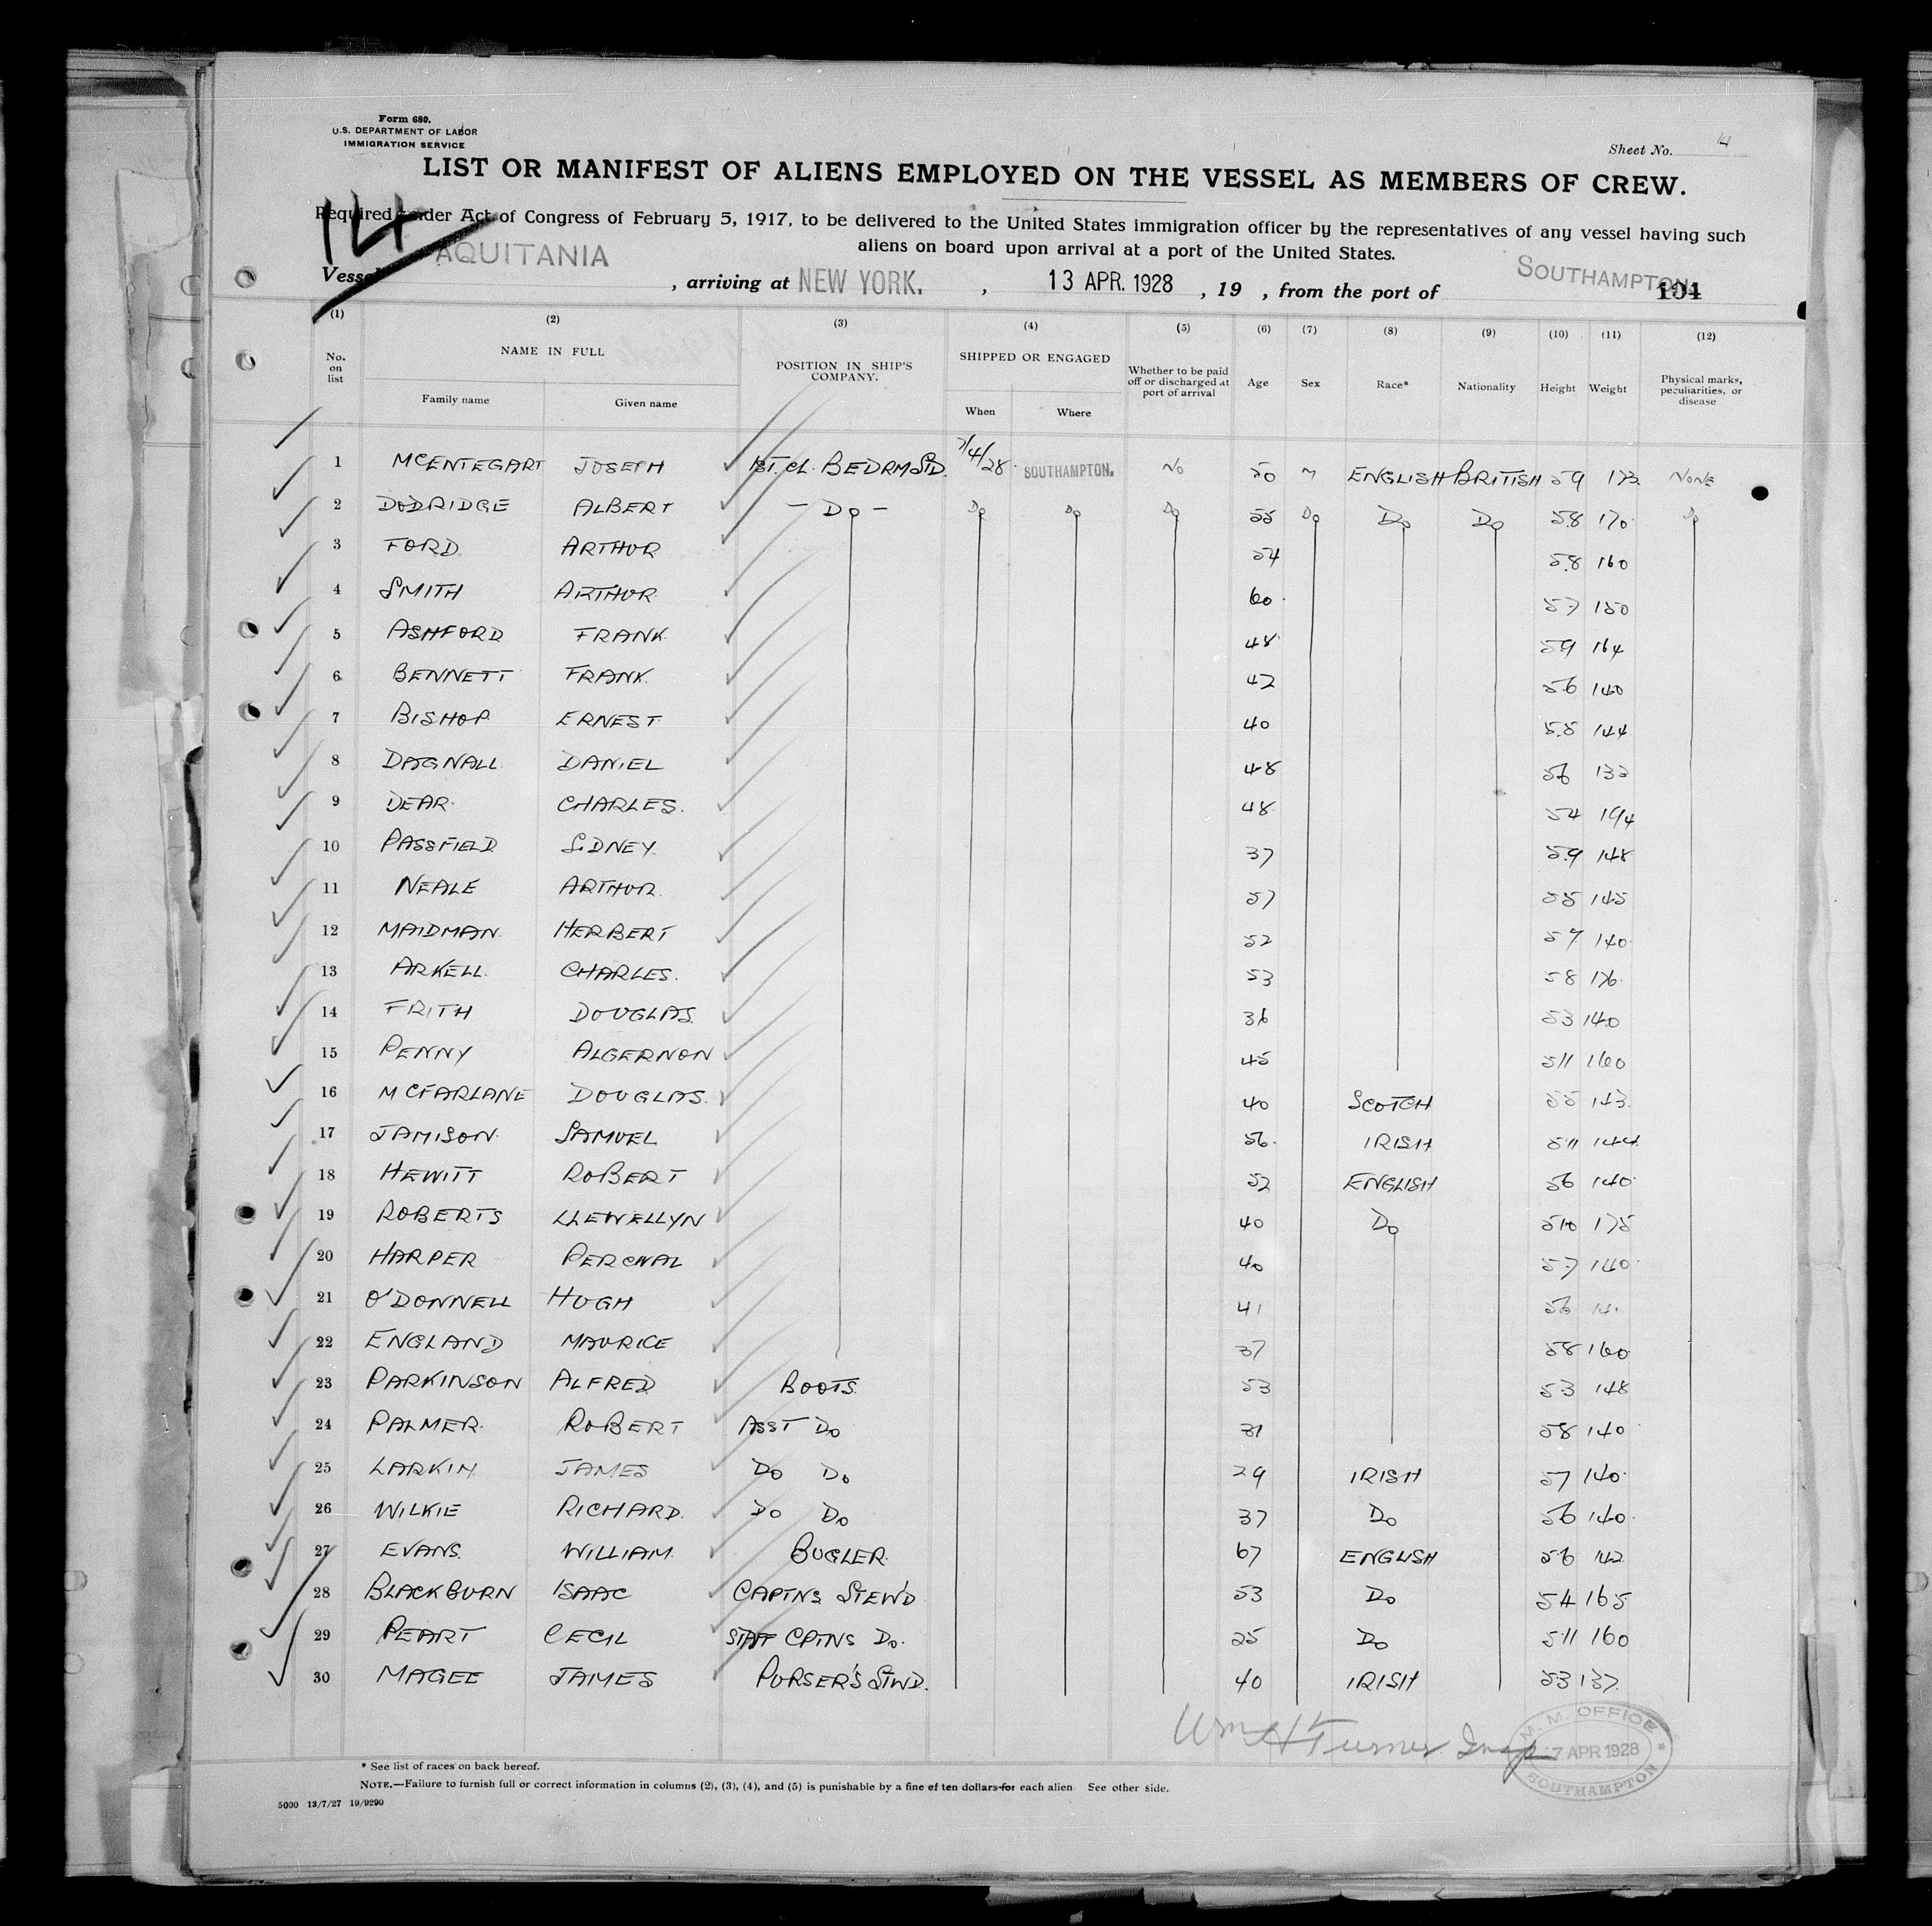 Form 680.
U.S. DEPARTMENT OF LABOR
IMMIGRATION SERVICE
Sheet No. 14
LIST OR MANIFEST OF ALIENS EMPLOYED ON THE VESSEL AS MEMBERS OF CREW.
14
Required under Act of Congress of February 5, 1917, to be delivered to the United States immigration officer by the representatives of any vessel having such
aliens on board upon arrival at a port of the United States.
Vessel AQUITANIA, arriving at NEW YORK., 13 APR. 1928, 19 , from the port of SOUTHAMPTON.
(1) (2) (3) (4) (5) (6) (7) (8) (9) (10) (11) (12)
No. on list NAME IN FULL Family name Given name POSITION IN SHIP'S COMPANY. SHIPPED OR ENGAGED When Where Whether to be paid off or discharged at port of arrival Age Sex Race* Nationality Height Weight Physical marks, peculiarities, or disease
1 McENTEGART JOSEPH 1ST. CL. BEDRM STD. 7/4/28 SOUTHAMPTON. No 50 M ENGLISH BRITISH 59 173 NONE
2 DODRIDGE ALBERT - Do - Do Do Do 55 Do Do Do 5.8 170 Do
3 FORD ARTHUR 54 5.8 160
4 SMITH ARTHUR 60 57 150
5 ASHFORD FRANK 48 59 164
6 BENNETT FRANK 42 56 140
7 BISHOP ERNEST 40 5.8 144
8 DAGNALL DANIEL 48 56
9 DEAR CHARLES. 48 54 194
10 PASSFIELD SIDNEY 37 59 148
11 NEALE ARTHUR 57 55 145
12 MAIDMAN HERBERT 52 57 140
13 ARKELL CHARLES. 53 58 176
14 FRITH DOUGLAS. 36 53 140
15 PENNY ALGERNON 45 511 160
16 McFARLANE DOUGLAS. 40 SCOTCH 55 143
17 JAMISON SAMUEL 56 IRISH 511 144
18 HEWITT ROBERT 52 ENGLISH 56 140
19 ROBERTS LLEWELLYN 40 Do 510 175
20 HARPER PERCIVAL 40 57 140
21 O'DONNELL HUGH 41 56
22 ENGLAND MAURICE 37 58 160
23 PARKINSON ALFRED 53 BOOTS. 53 148
24 PALMER ROBERT ASST Do 31 58 140
25 LARKIN JAMES Do Do 29 IRISH 57 140
26 WILKIE RICHARD. Do Do 37 Do 56 140
27 EVANS. WILLIAM. BUGLER. 67 ENGLISH 56 142
28 BLACKBURN ISAAC CAPTNS STEW'D 53 Do 54 165
29 PEART CECIL STAFF CPTNS Do. 25 Do 511 160
30 MAGEE JAMES PURSER'S STWD. 40 IRISH 53 137
Wm H Turner Insp
M. M. OFFICE
7 APR 1928
SOUTHAMPTON
* See list of races on back hereof.
NOTE.—Failure to furnish full or correct information in columns (2), (3), (4), and (5) is punishable by a fine of ten dollars for each alien. See other side.
5000 13/7/27 19/9290